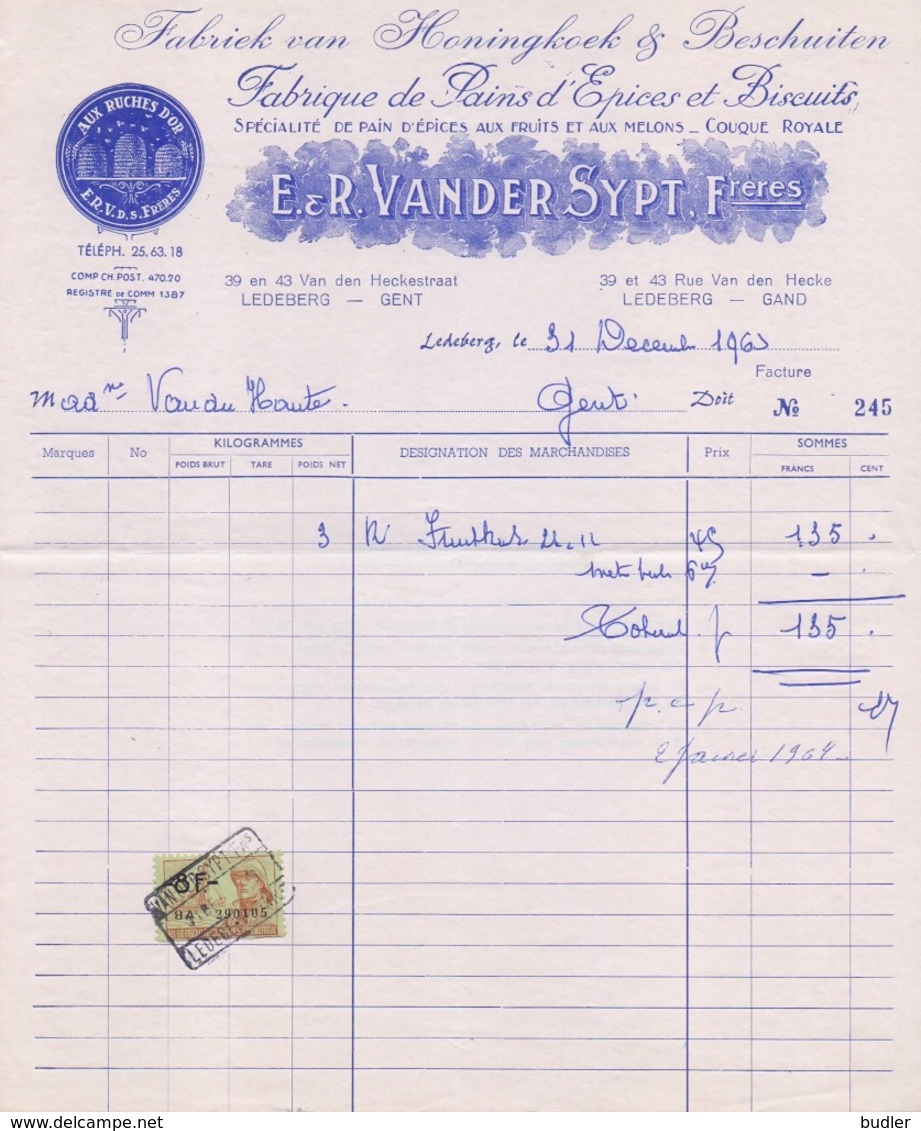 Fabriek van Honingkoek & Beschuiten
Fabrique de Pains d'Epices et Biscuits
SPÉCIALITÉ DE PAIN D'ÉPICES AUX FRUITS ET AUX MELONS _ COUQUE ROYALE
AUX RUCHES D'OR
E.R.V.D.S. FRÈRES
E. & R. VANDER SYPT, Frères
TÉLÉPH. 25.63.18
COMP CH. POST. 470.20
REGISTRE DE COMM 1387
39 en 43 Van den Heckestraat
LEDEBERG — GENT
39 et 43 Rue Van den Hecke
LEDEBERG — GAND
Ledeberg, le 31 Decemb 1963
Facture
Madme Gent Doit No 245
Marques No KILOGRAMMES DESIGNATION DES MARCHANDISES Prix SOMMES
POIDS BRUT TARE POIDS NET FRANCS CENT
3 45 135
135
p. a p.
2 janvier 1964
8F-
8A 290105
LEDEBERG
budler